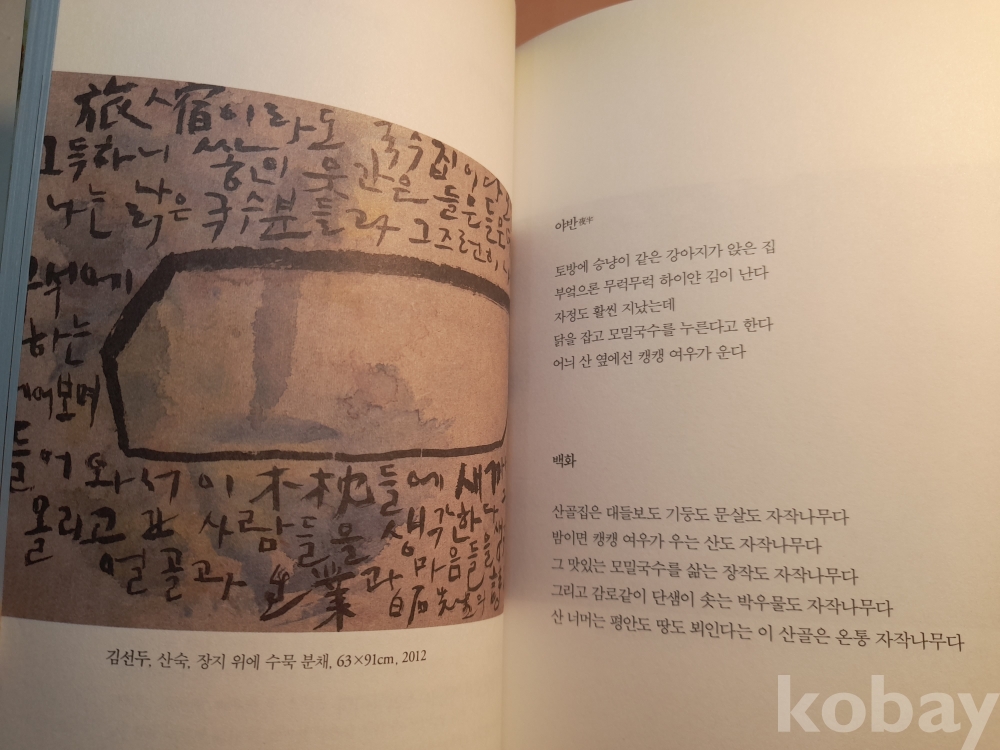 旅人宿이라도 국수집이다
그득하니 쌓인 웃간은 들믄들믄
나는 낡은 국수분틀과 그즈런히 나
구석에
하는
베어보며
들어와서 이 木枕들에 새까
올리고 간 사람들을 생각한다
얼골과 生業과 마음들을
김선두, 산숙, 장지 위에 수묵 분채, 63×91cm, 2012
야반夜半
토방에 승냥이 같은 강아지가 앉은 집
부엌으론 무럭무럭 하이얀 김이 난다
자정도 활씬 지났는데
닭을 잡고 모밀국수를 누른다고 한다
어늬 산 옆에선 캥캥 여우가 운다
백화
산골집은 대들보도 기둥도 문살도 자작나무다
밤이면 캥캥 여우가 우는 산도 자작나무다
그 맛있는 모밀국수를 삶는 장작도 자작나무다
그리고 감로같이 단샘이 솟는 박우물도 자작나무다
산 너머는 평안도 땅도 뵈인다는 이 산골은 온통 자작나무다
kobay